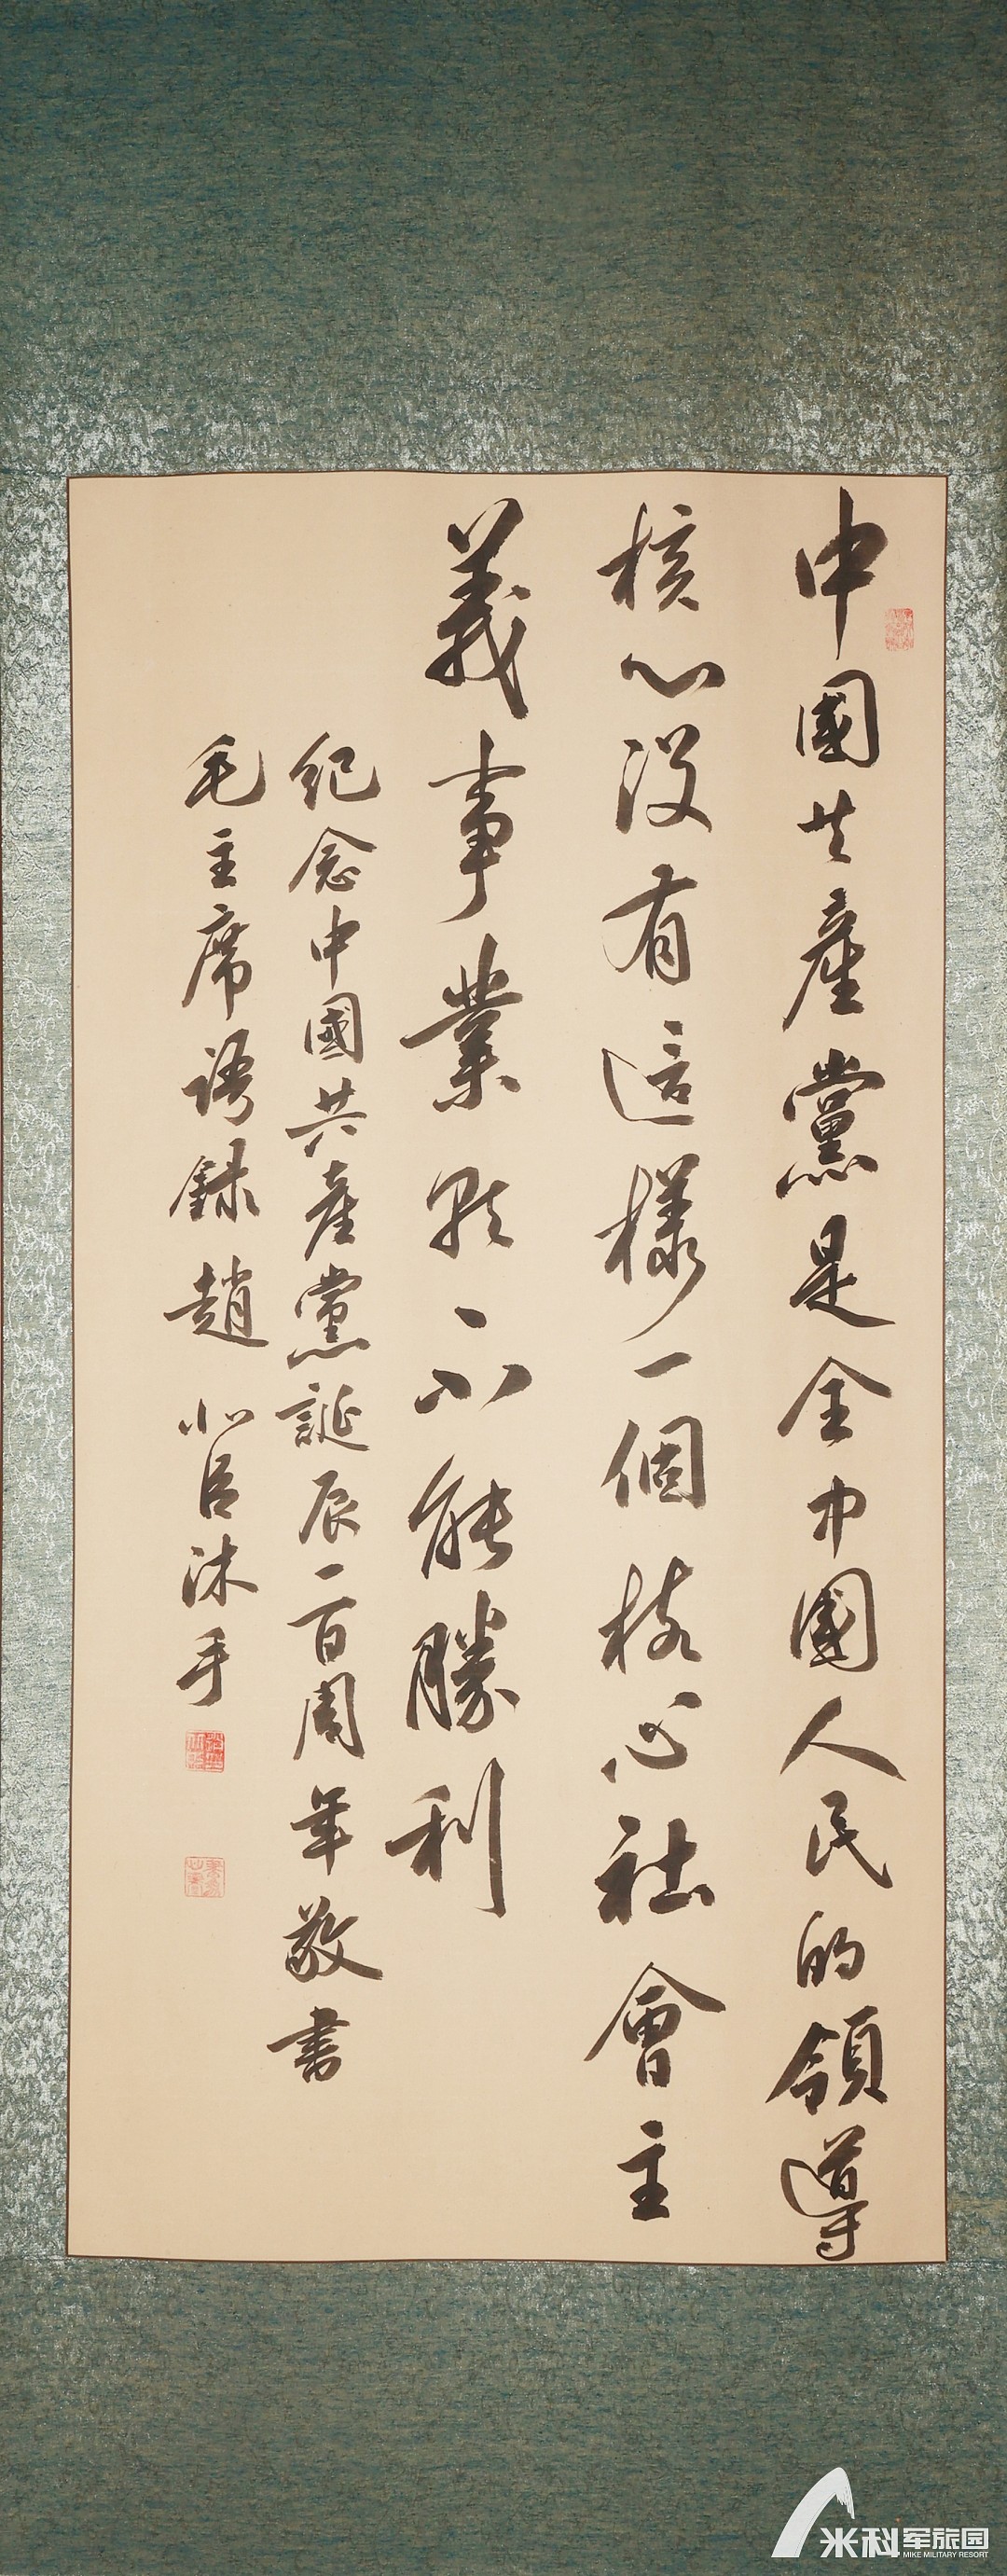 中國共產黨是全中國人民的領導
核心没有這樣一個核心社會主
義事業就不能勝利
紀念中國共產黨誕辰一百周年敬書
毛主席語録趙小呂沐手
米科军旅园
MIKE MILITARY RESORT